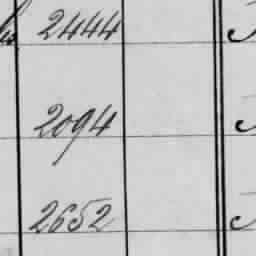 2444
2094
2652